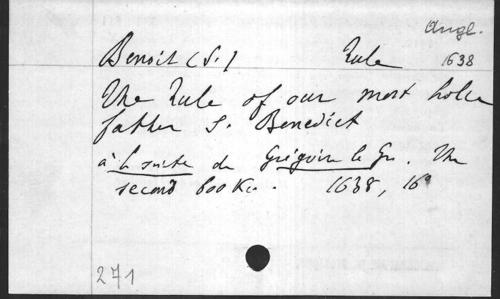 Angl.
Benoit (S.) Rule 1638
The Rule of our most holie
father S. Benedict
à la suite de Grégoire le Gr. The
second booke. 1638, 16°
271